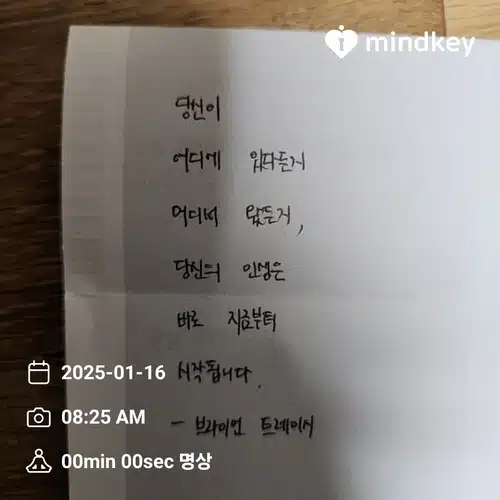 mindkey
당신이
어디에 있다든거
어디서 왔든거,
당신의 인생은
바로 지금부터
시작됩니다.
- 브라이언 트레이시
2025-01-16
08:25 AM
00min 00sec 명상